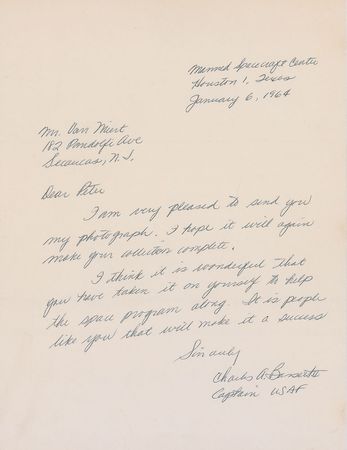 Manned Spacecraft Center
Houston 1, Texas
January 6, 1964
Mr. Van Miert
182 Pandolfi Ave
Secaucus, N. J.
Dear Peter
I am very pleased to send you
my photograph. I hope it will again
make your collection complete.
I think it is wonderful that
you have taken it on yourself to help
the space program along. It is people
like you that will make it a success
Sincerely
Charles A. Bassett II
Captain USAF